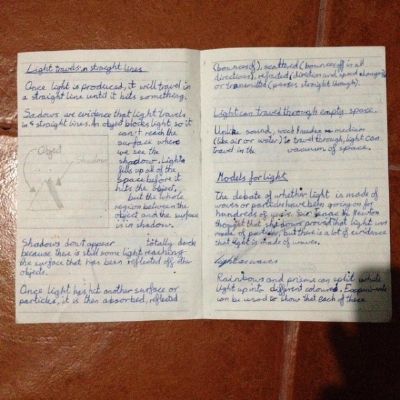 Light travels in straight lines
Once light is produced, it will travel in
a straight line until it hits something.
Shadows are evidence that light travels
in straight lines. An object blocks light so it
can't reach the
surface where
we see the
shadow. Light
fills up all of the
space before it
hits the object,
but the whole
region between the
object and the surface
is in shadow.
Object
Shadow
Shadows don't appear totally dark
because there is still some light reaching
the surface that has been reflected off other
objects.
Once light has hit another surface or
particles, it is then absorbed, reflected
(bounces off), scattered (bounces off in all
directions), refracted (direction and speed changes)
or transmitted (passes straight through).
Light can travel through empty space.
Unlike sound, which needs a medium
(like air or water) to travel through, light can
travel in the vacuum of space.
Models for light
The debate of whether light is made of
waves or particles have being going on for
hundreds of years. Sir Isaac Newton
thought that shadows proved that light was
made of particles, but there is a lot of evidence
that light is made of waves.
Light as waves
Rainbows and prisms can split white
light up into different colours. Experiments
can be used to show that each of these